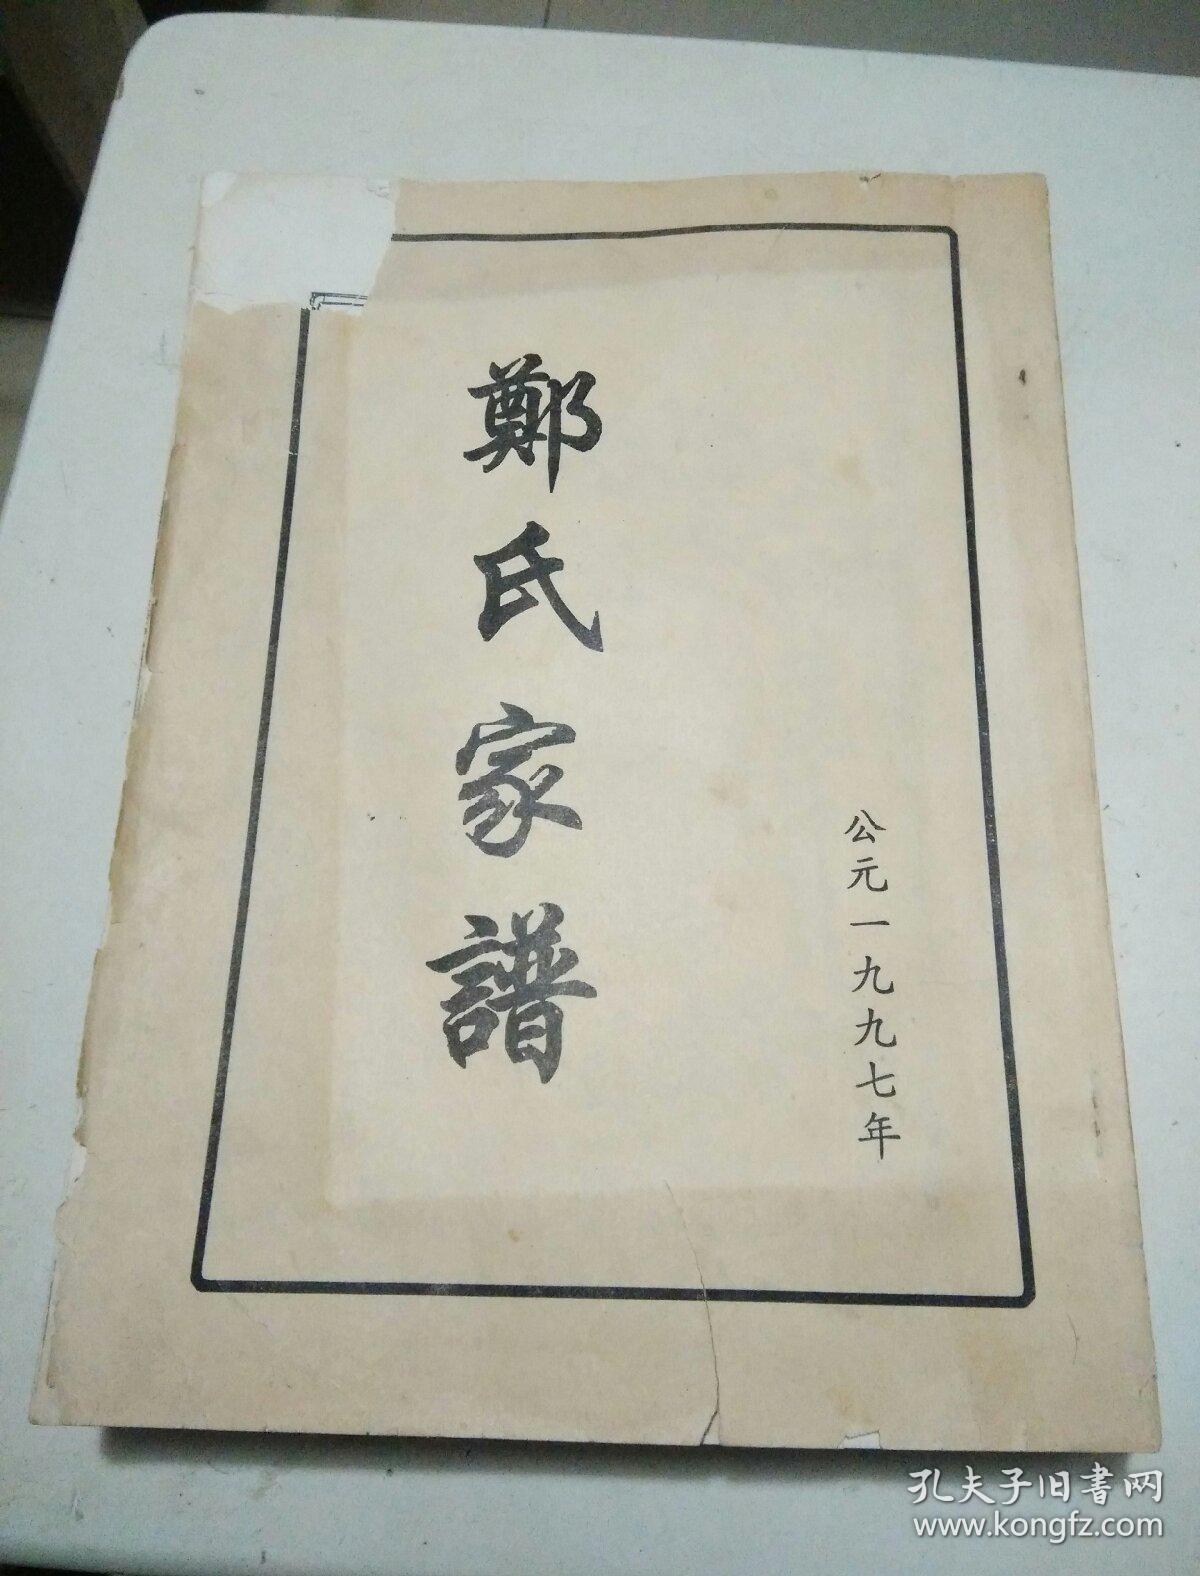 公元一九九七年
鄭氏家譜
孔夫子旧書网
www.kongfz.com